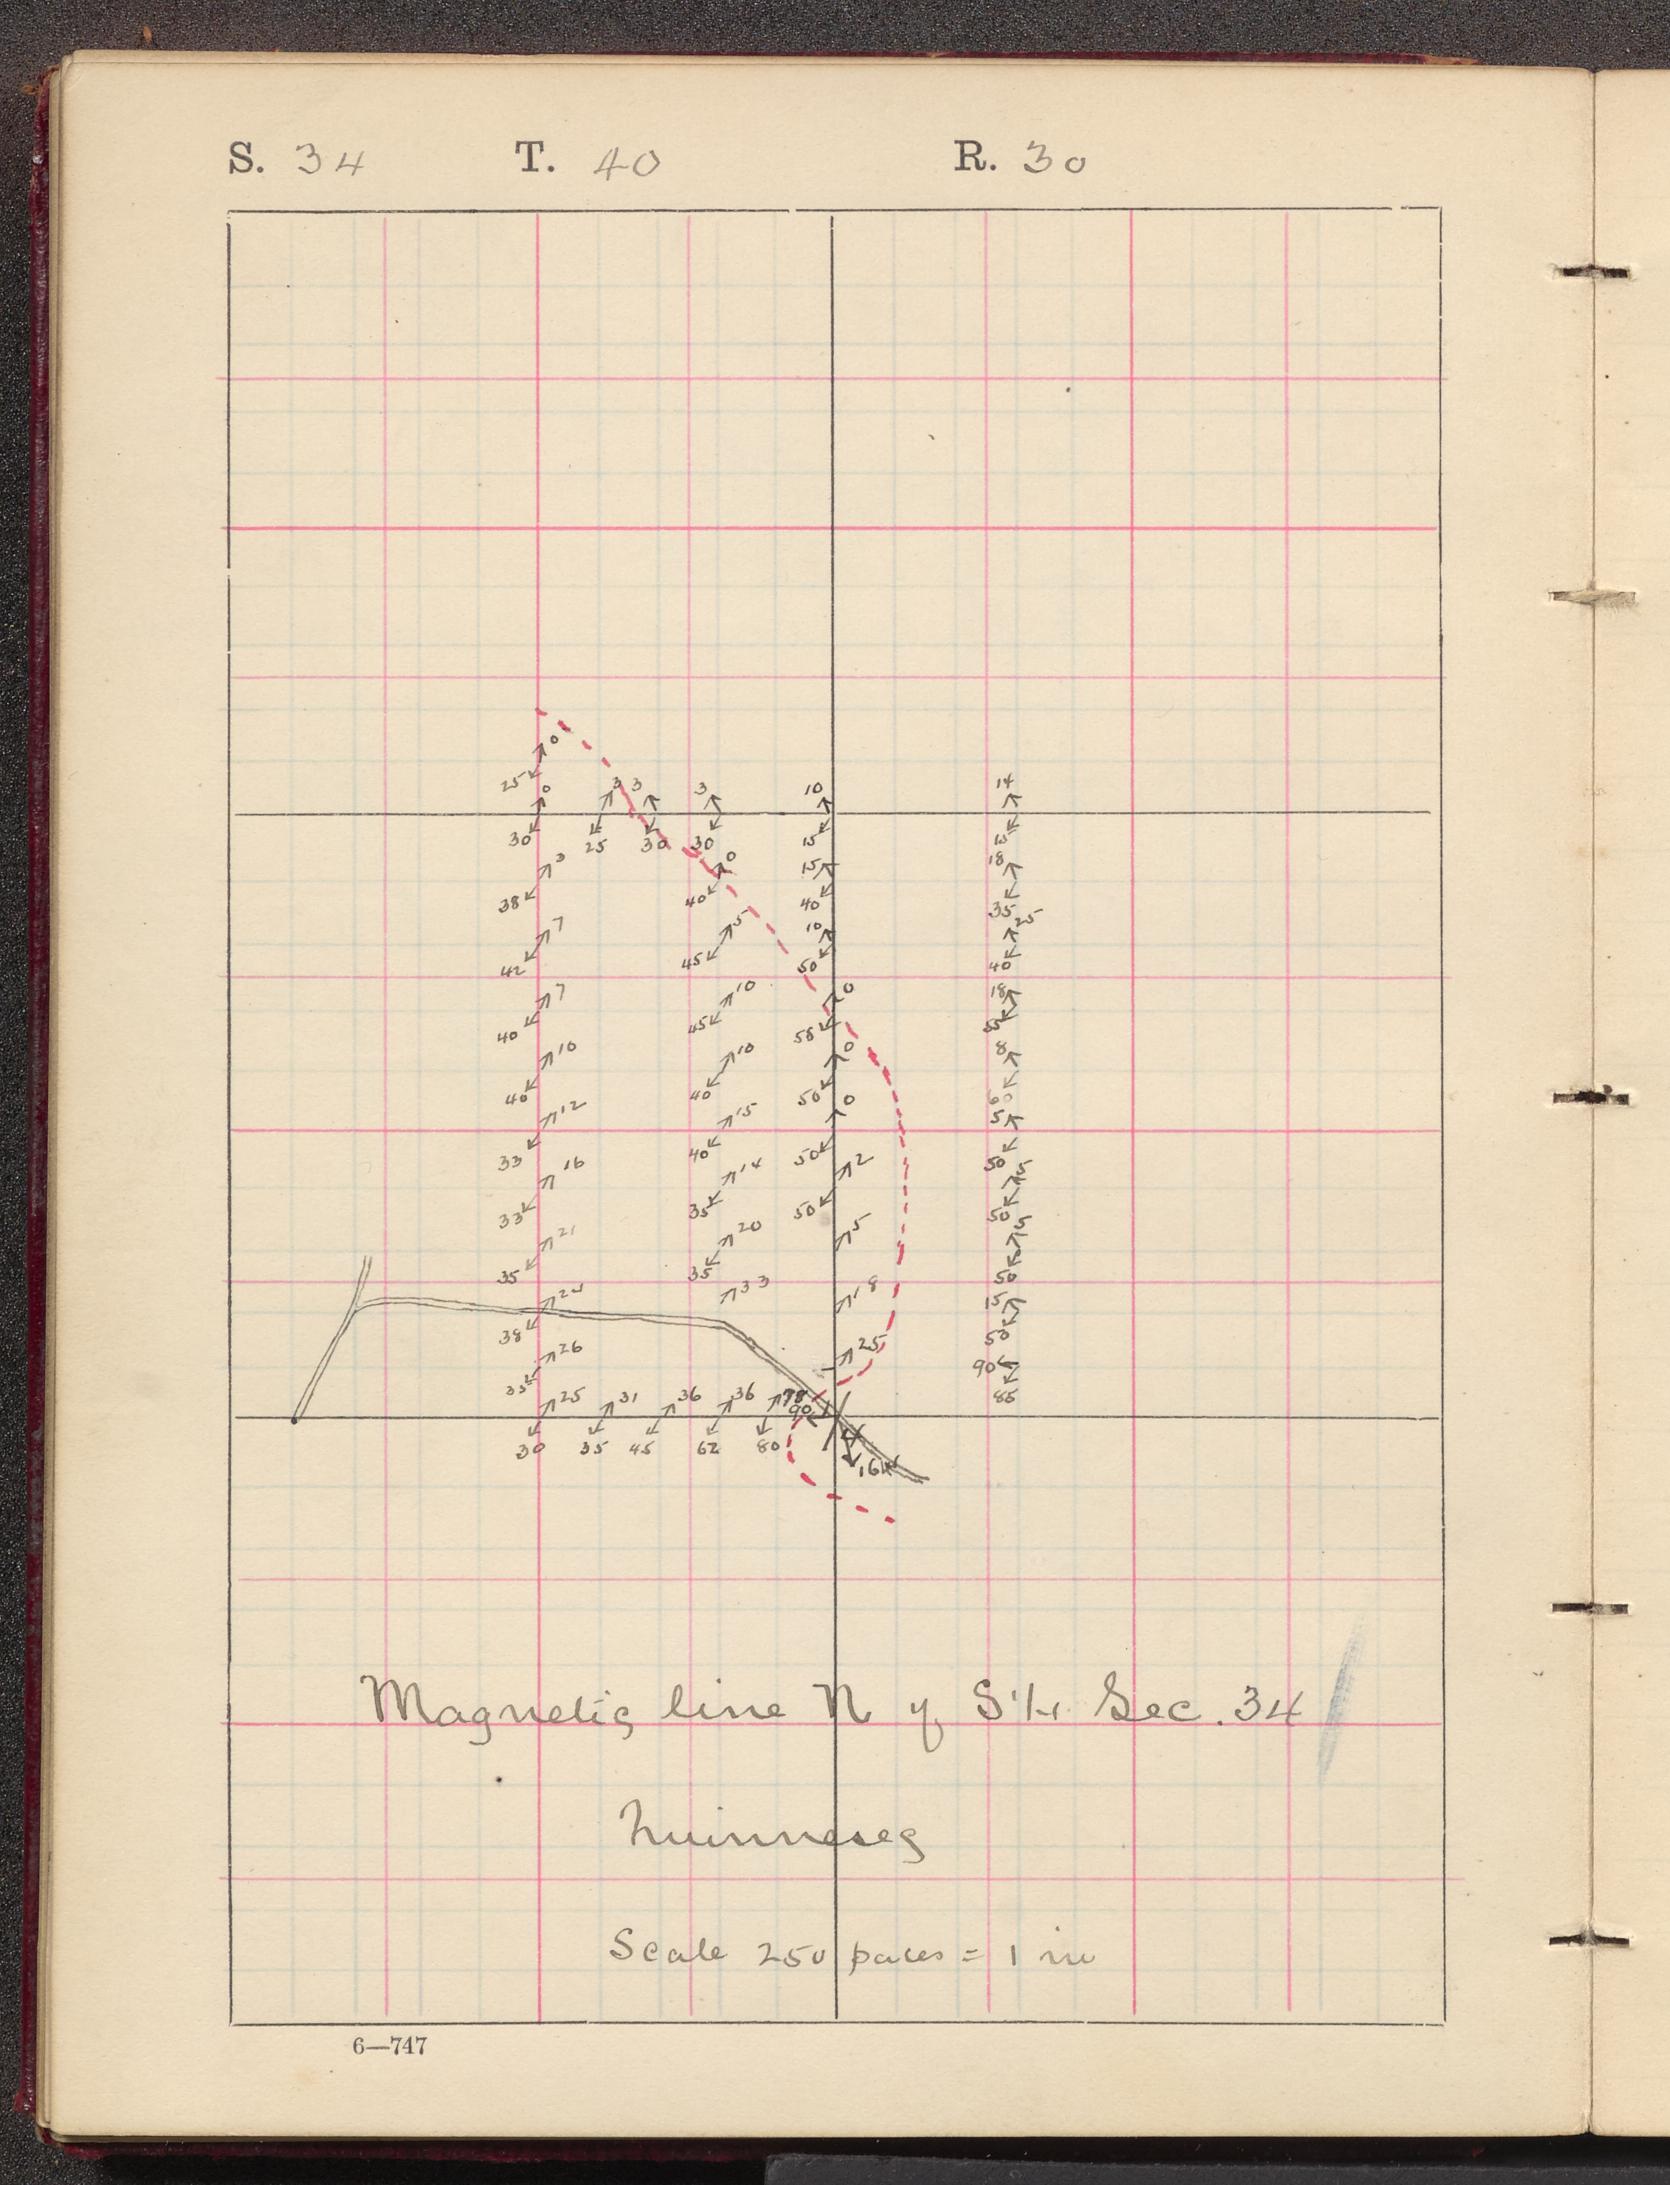 S. 34 T. 40 R. 30
0
25
0 3 3 3 10 14
30 25 30 30 15 15
3 0 15 18
38 40 40 35 25
7 5 10
42 45 50 40
7 10 0 18
40 45 55
10 10 0 8
40 40 50 60
12 15 0 5
33 40 50 50
16 14 2 5
33 35 50 50
21 20 5 5
35 35 50
24 33 18 15
38 50
26 25 90
35 85
25 31 36 36 78 90
30 35 45 62 80
Magnetic line N of S 1/4 Sec. 34
Quinnesec
Scale 250 paces = 1 in
6—747